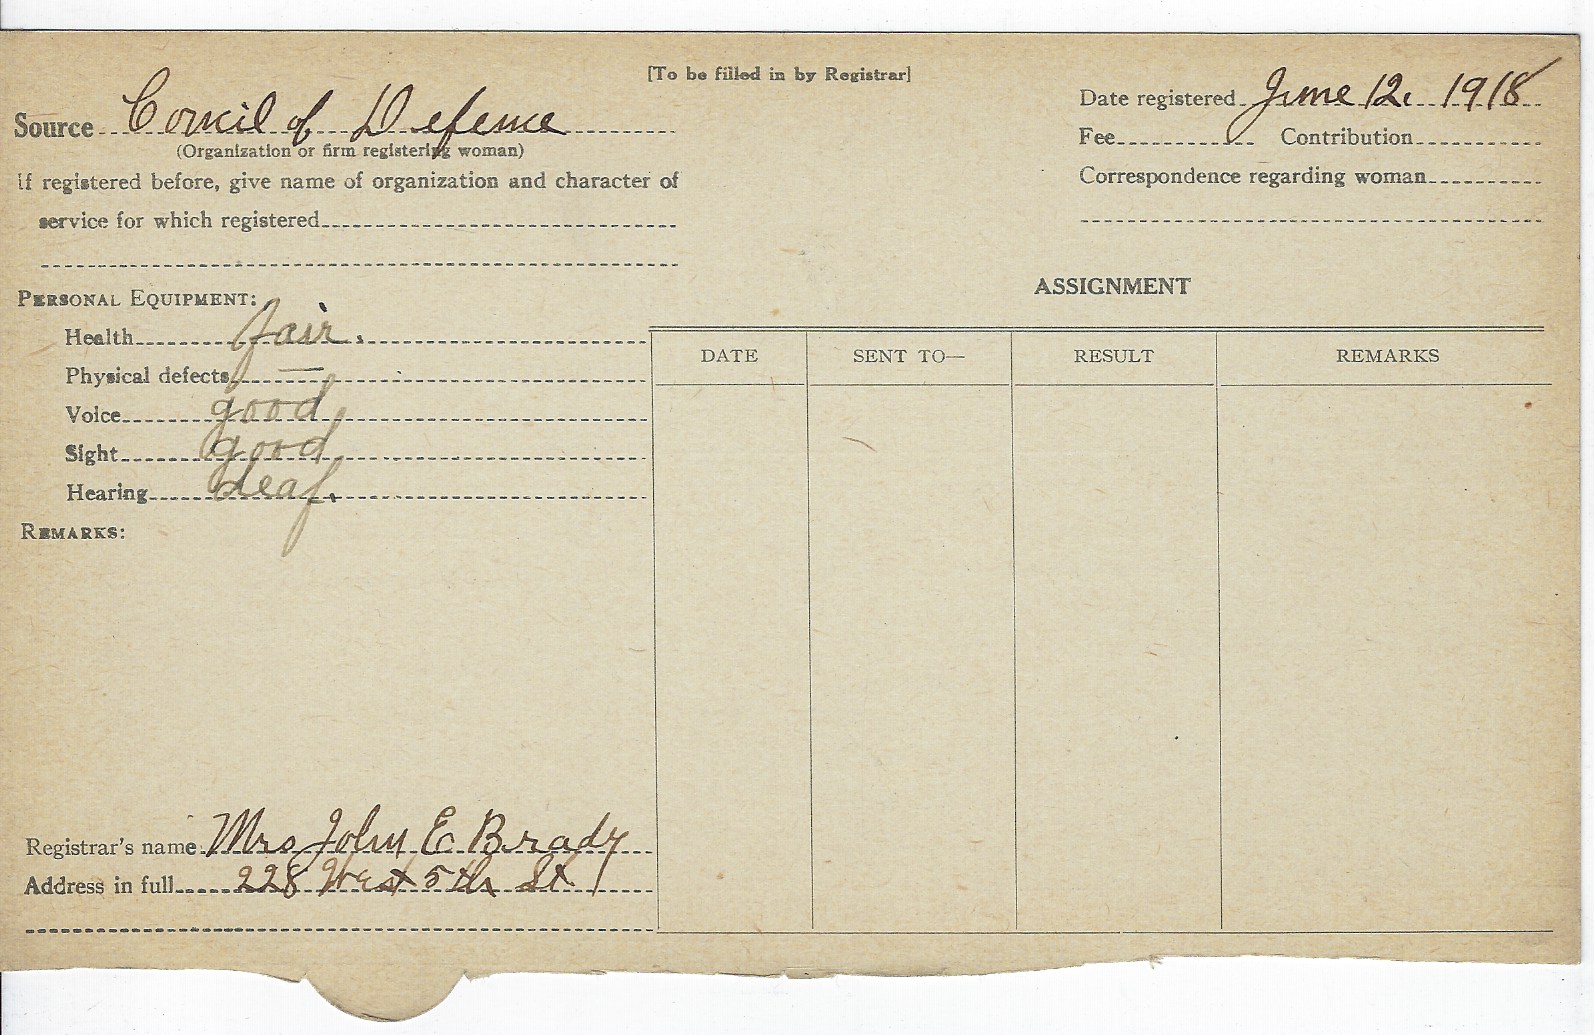 [To be filled in by Registrar]
Source Council of Defence
(Organization or firm registering woman)
If registered before, give name of organization and character of
service for which registered
Date registered June 12, 1918
Fee Contribution
Correspondence regarding woman
PERSONAL EQUIPMENT:
Health fair.
Physical defects —
Voice good
Sight good
Hearing deaf.
REMARKS:
ASSIGNMENT
DATE SENT TO— RESULT REMARKS
Registrar's name Mrs John E Brady
Address in full 228 West 5th St